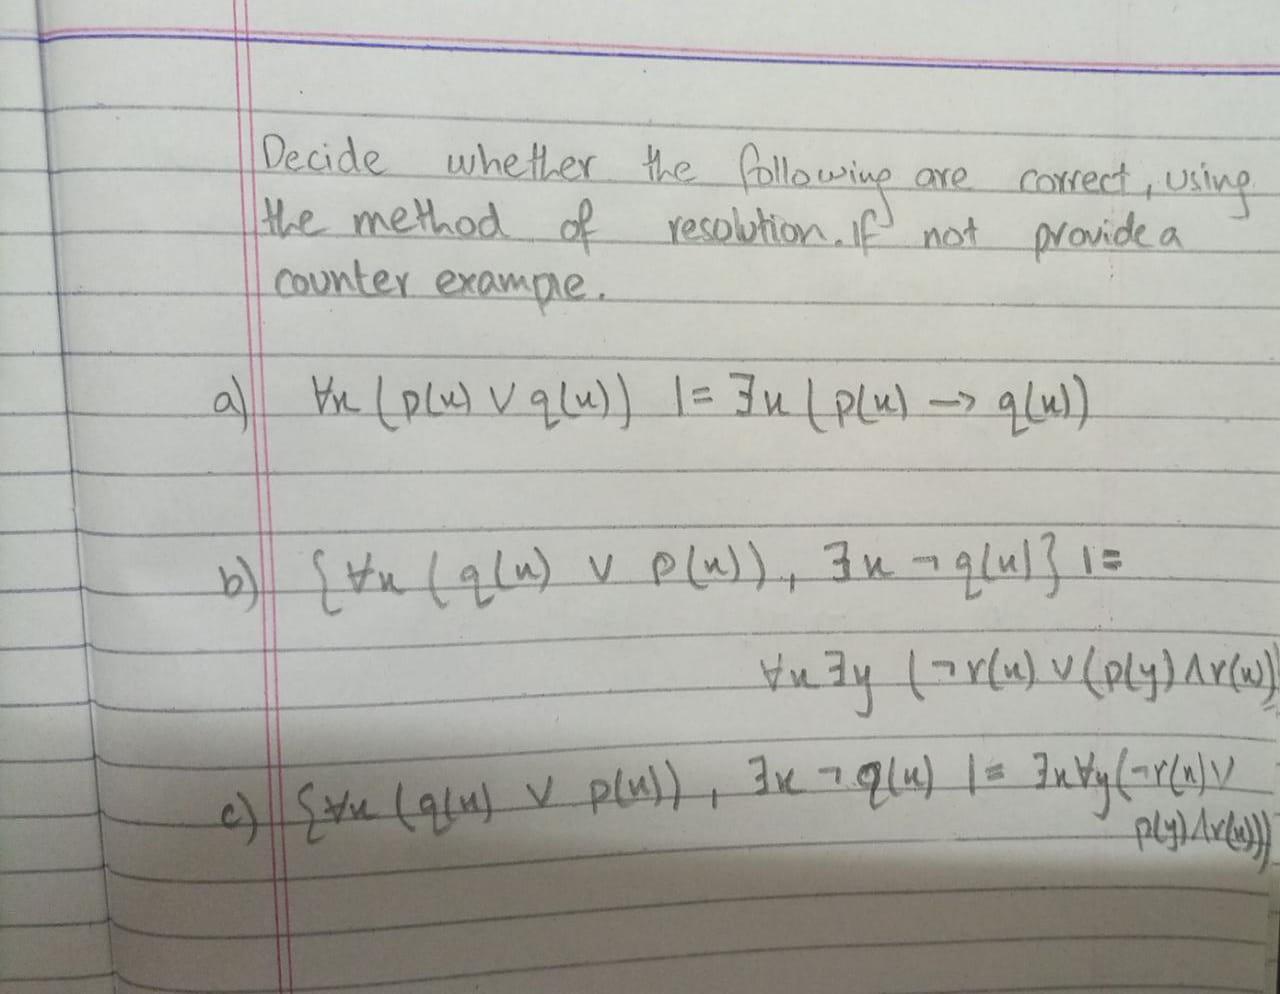 Decide whether the following are correct, using
the method of resolution. If not provide a
counter example.
a) ∀x (p(x) ∨ q(x)) |= ∃x (p(x) → q(x))
b) {∀x (q(x) ∨ p(x)), ∃x ¬q(x)} |=
∀x ∃y (¬r(x) ∨ (p(y) ∧ r(x))
c) {∀x (q(x) ∨ p(x)), ∃x ¬q(x) |= ∃x∀y(¬r(x) ∨
p(y) ∧ r(x)))